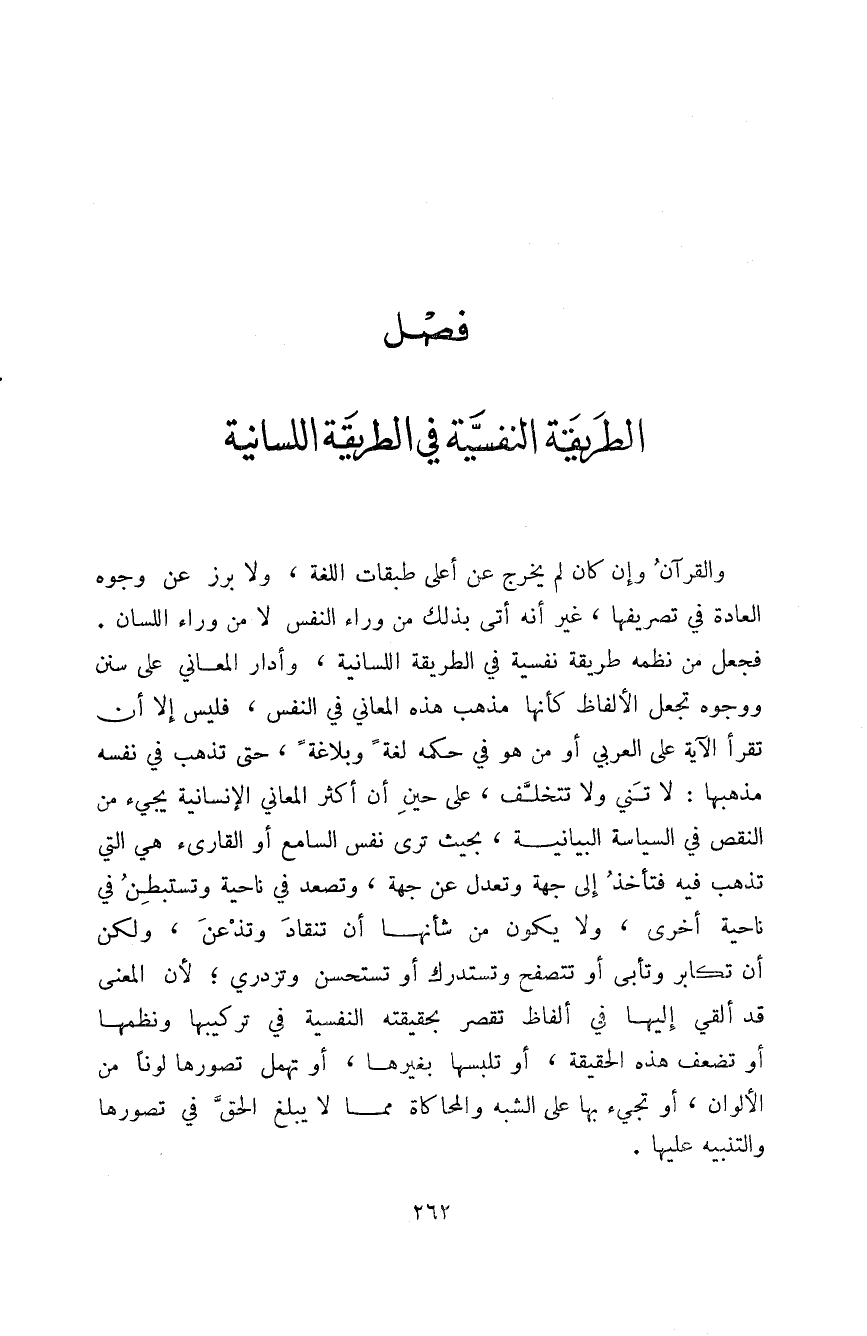 فصْل
الطَريقَة النفسيَّة في الطريقَة اللسانية
والقرآنُ وإن كان لم يخرج عن أعلى طبقات اللغة ، ولا برز عن وجوه
العادة في تصريفها ، غير أنه أتى بذلك من وراء النفس لا من وراء اللسان .
فجعل من نظمه طريقة نفسية في الطريقة اللسانية ، وأدار المعاني على سنن
ووجوه تجعل الألفاظ كأنها مذهب هذه المعاني في النفس ، فليس إلا أن
تقرأ الآية على العربي أو من هو في حكمه لغةً وبلاغةً ، حتى تذهب في نفسه
مذهبها : لا تَني ولا تتخلَّف ، على حينِ أن أكثر المعاني الإنسانية يجيء من
النقص في السياسة البيانية ، بحيث ترى نفس السامع أو القارىء هي التي
تذهب فيه فتأخذُ إلى جهة وتعدل عن جهة ، وتصعد في ناحية وتستبطنُ في
ناحية أخرى ، ولا يكون من شأنها أن تنقادَ وتذْعنَ ، ولكن
أن تكابر وتأبى أو تتصفح وتستدرك أو تستحسن وتزدري ؛ لأن المعنى
قد ألقي إليها في ألفاظ تقصر بحقيقته النفسية في تركيبها ونظمها
أو تضعف هذه الحقيقة ، أو تلبسها بغيرها ، أو تهمل تصورها لوناً من
الألوان ، أو تجيء بها على الشبه والمحاكاة مما لا يبلغ الحقَّ في تصورها
والتنبيه عليها .
٢٦٢